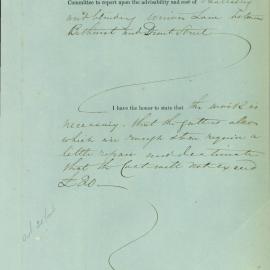 Committee to report upon the advisability and cost of
and blinding Lane between
Bathurst and Druitt Street
I have the honor to state that the work is
necessary. That the gutters also
which are rough stone require a
little repair and estimate
that the Cost will not exceed
£20 —